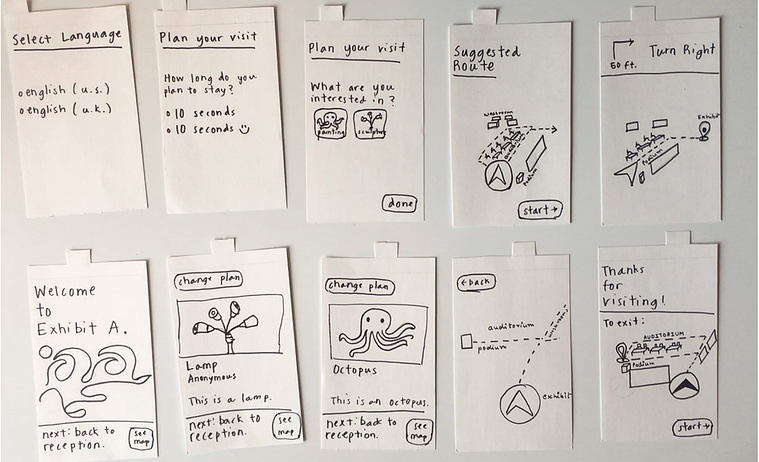 Select Language
english (u.s.)
english (u.k.)
Plan your visit
How long do you
plan to stay?
10 seconds
10 seconds
Plan your visit
What are you
interested in?
painting
sculpture
done
Suggested
Route
washroom
Podium
start →
50 ft.
Turn Right
Exhibit
Podium
Welcome
to
Exhibit A.
next: back to
reception.
see
map
change plan
Lamp
Anonymous
This is a lamp.
next: back to
reception.
see
map
change plan
Octopus
This is an octopus.
next: back to
reception.
see
map
← back
auditorium
podium
washroom
exhibit
Thanks
for
visiting!
To exit:
AUDITORIUM
Podium
start →